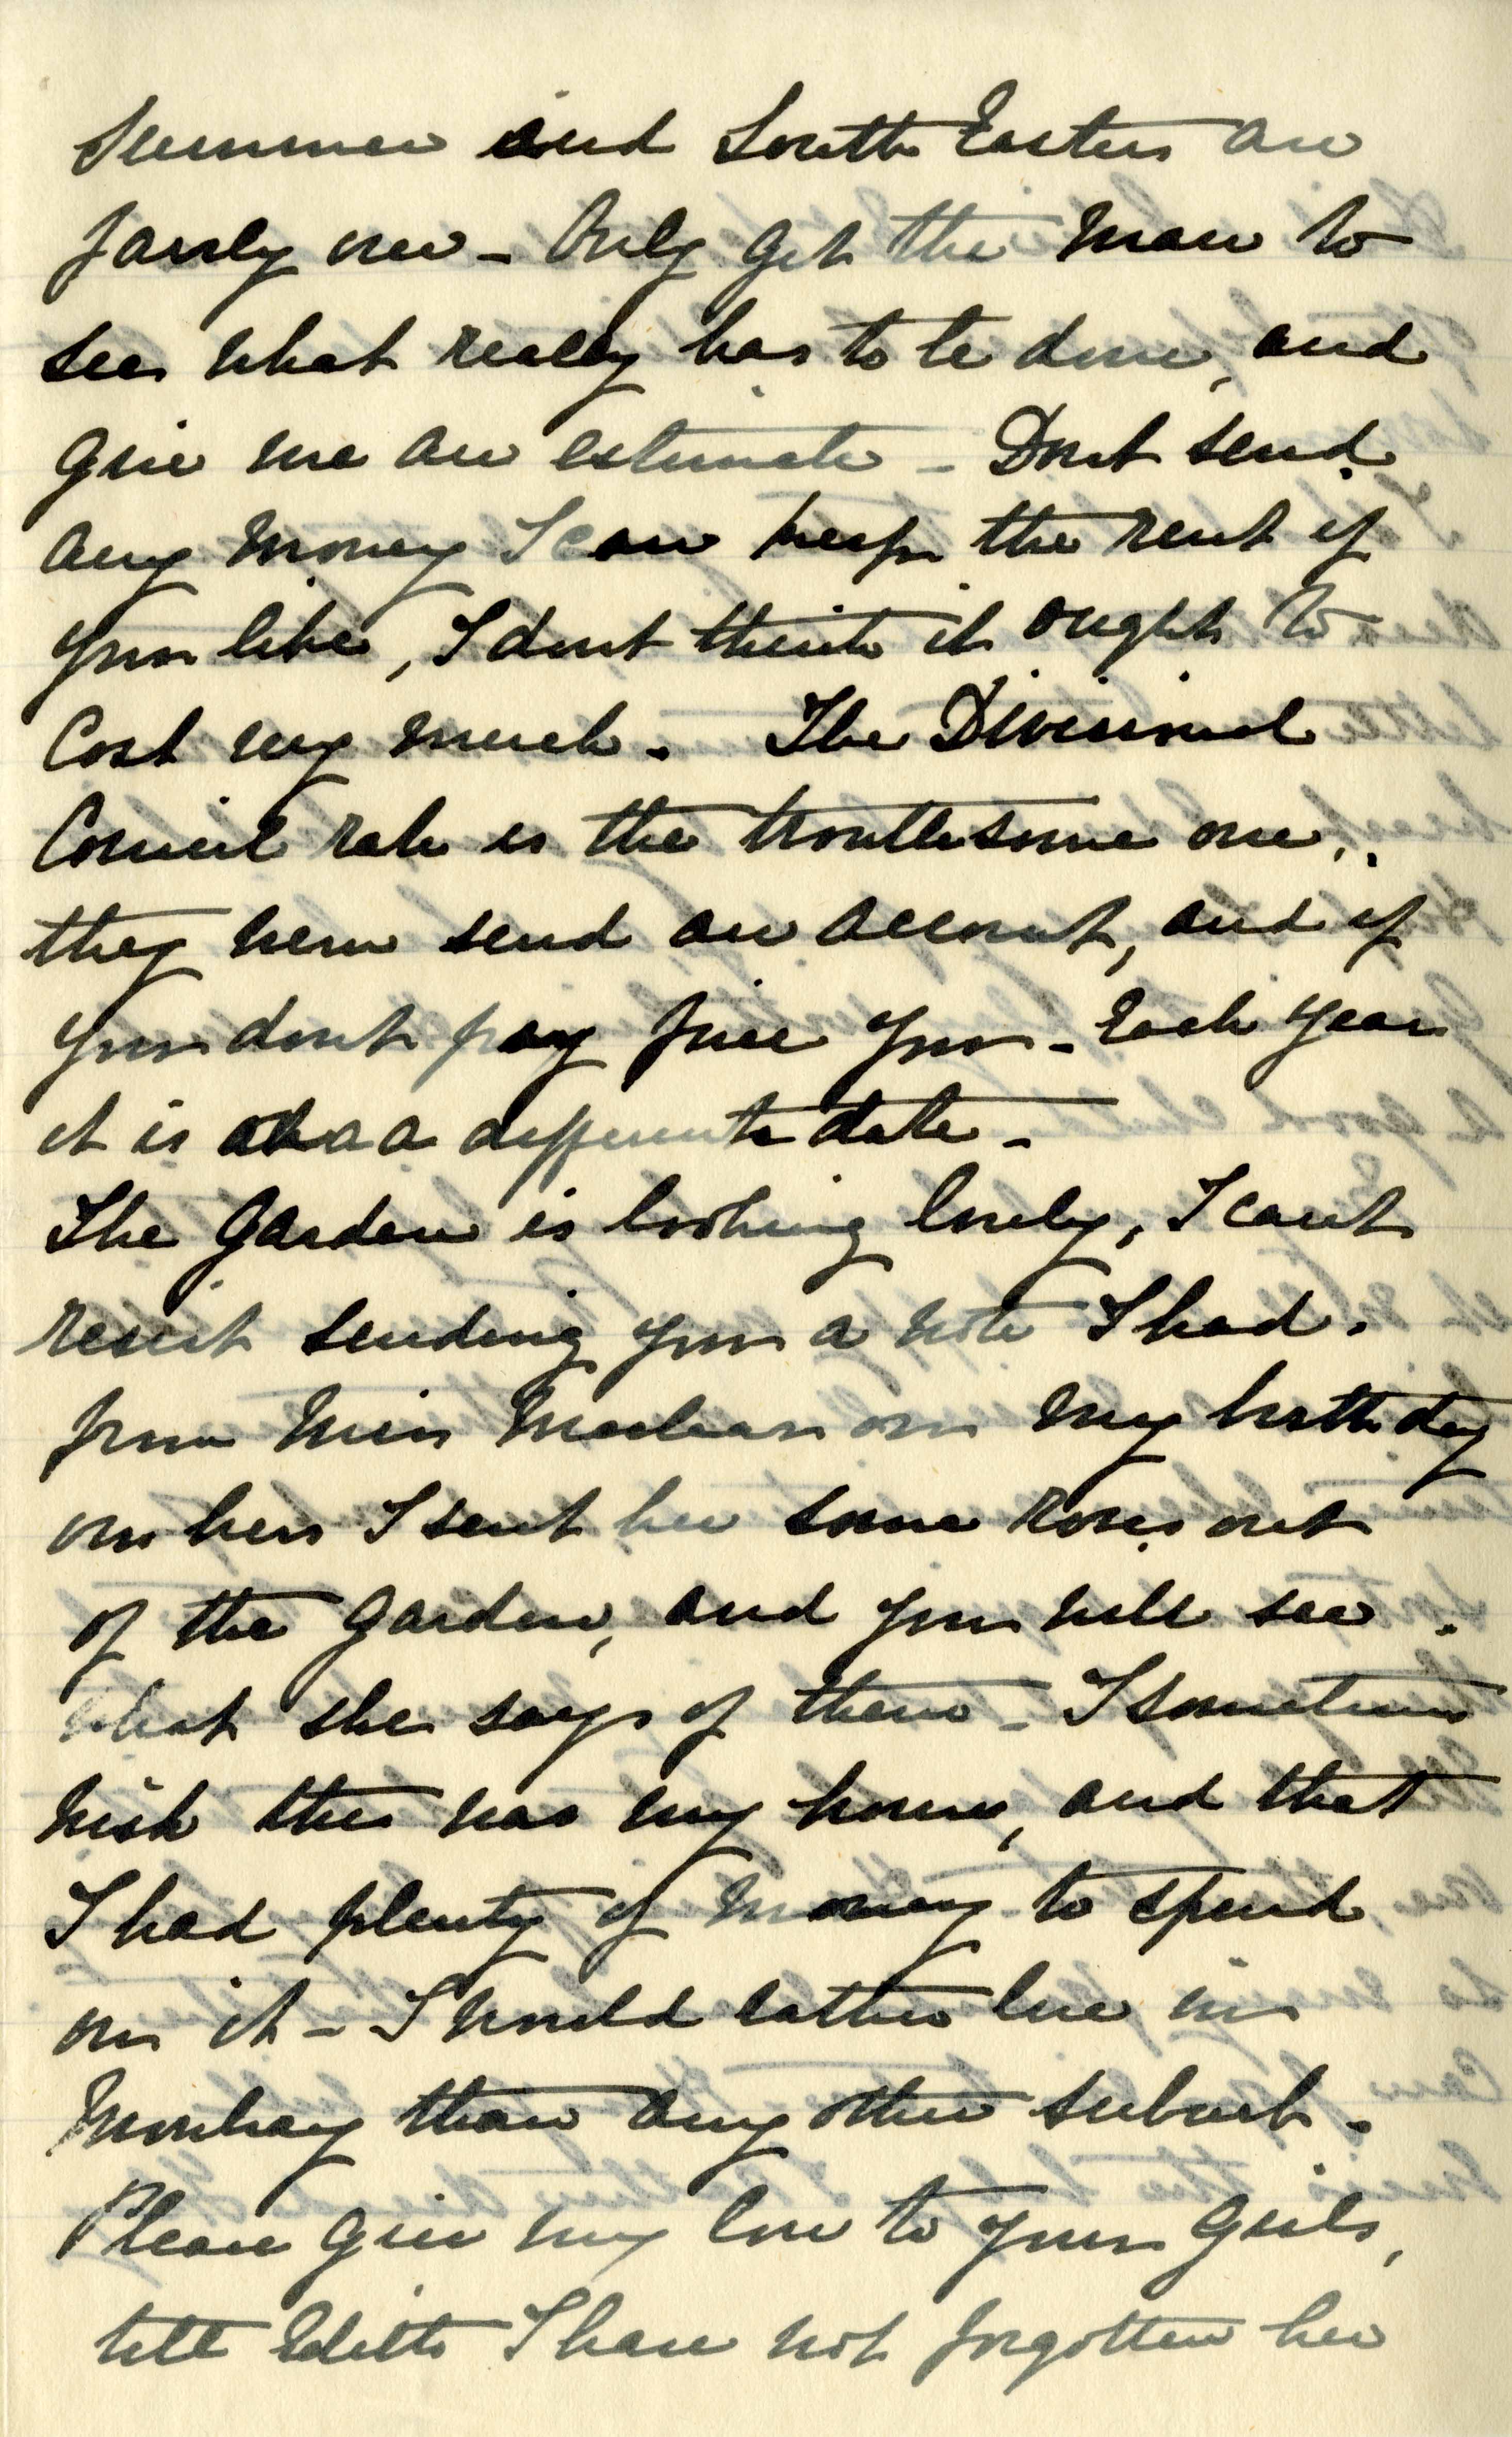 Summer and South Easters are
fairly over - Only get the man to
see what really has to be done, and
give me an estimate - Dont send
any money I can keep the rent if
you like, I dont think it ought to
cost very much. The Divisional
Council rate is the troublesome one,
they never send an account, and if
you dont pay fine you - Each year
it is at a a different date -
The Garden is looking lovely, I cant
resist sending you a note I had.
from Miss Maclear on my birthday
on hers I sent her some roses out
of the garden, and you will see.
what she says of them - I sometimes
wish this was my house, and that
I had plenty of money to spend
on it - I would rather live in
Mowbray than any other suburb.
Please give my love to your girls,
tell Edith I have not forgotten her